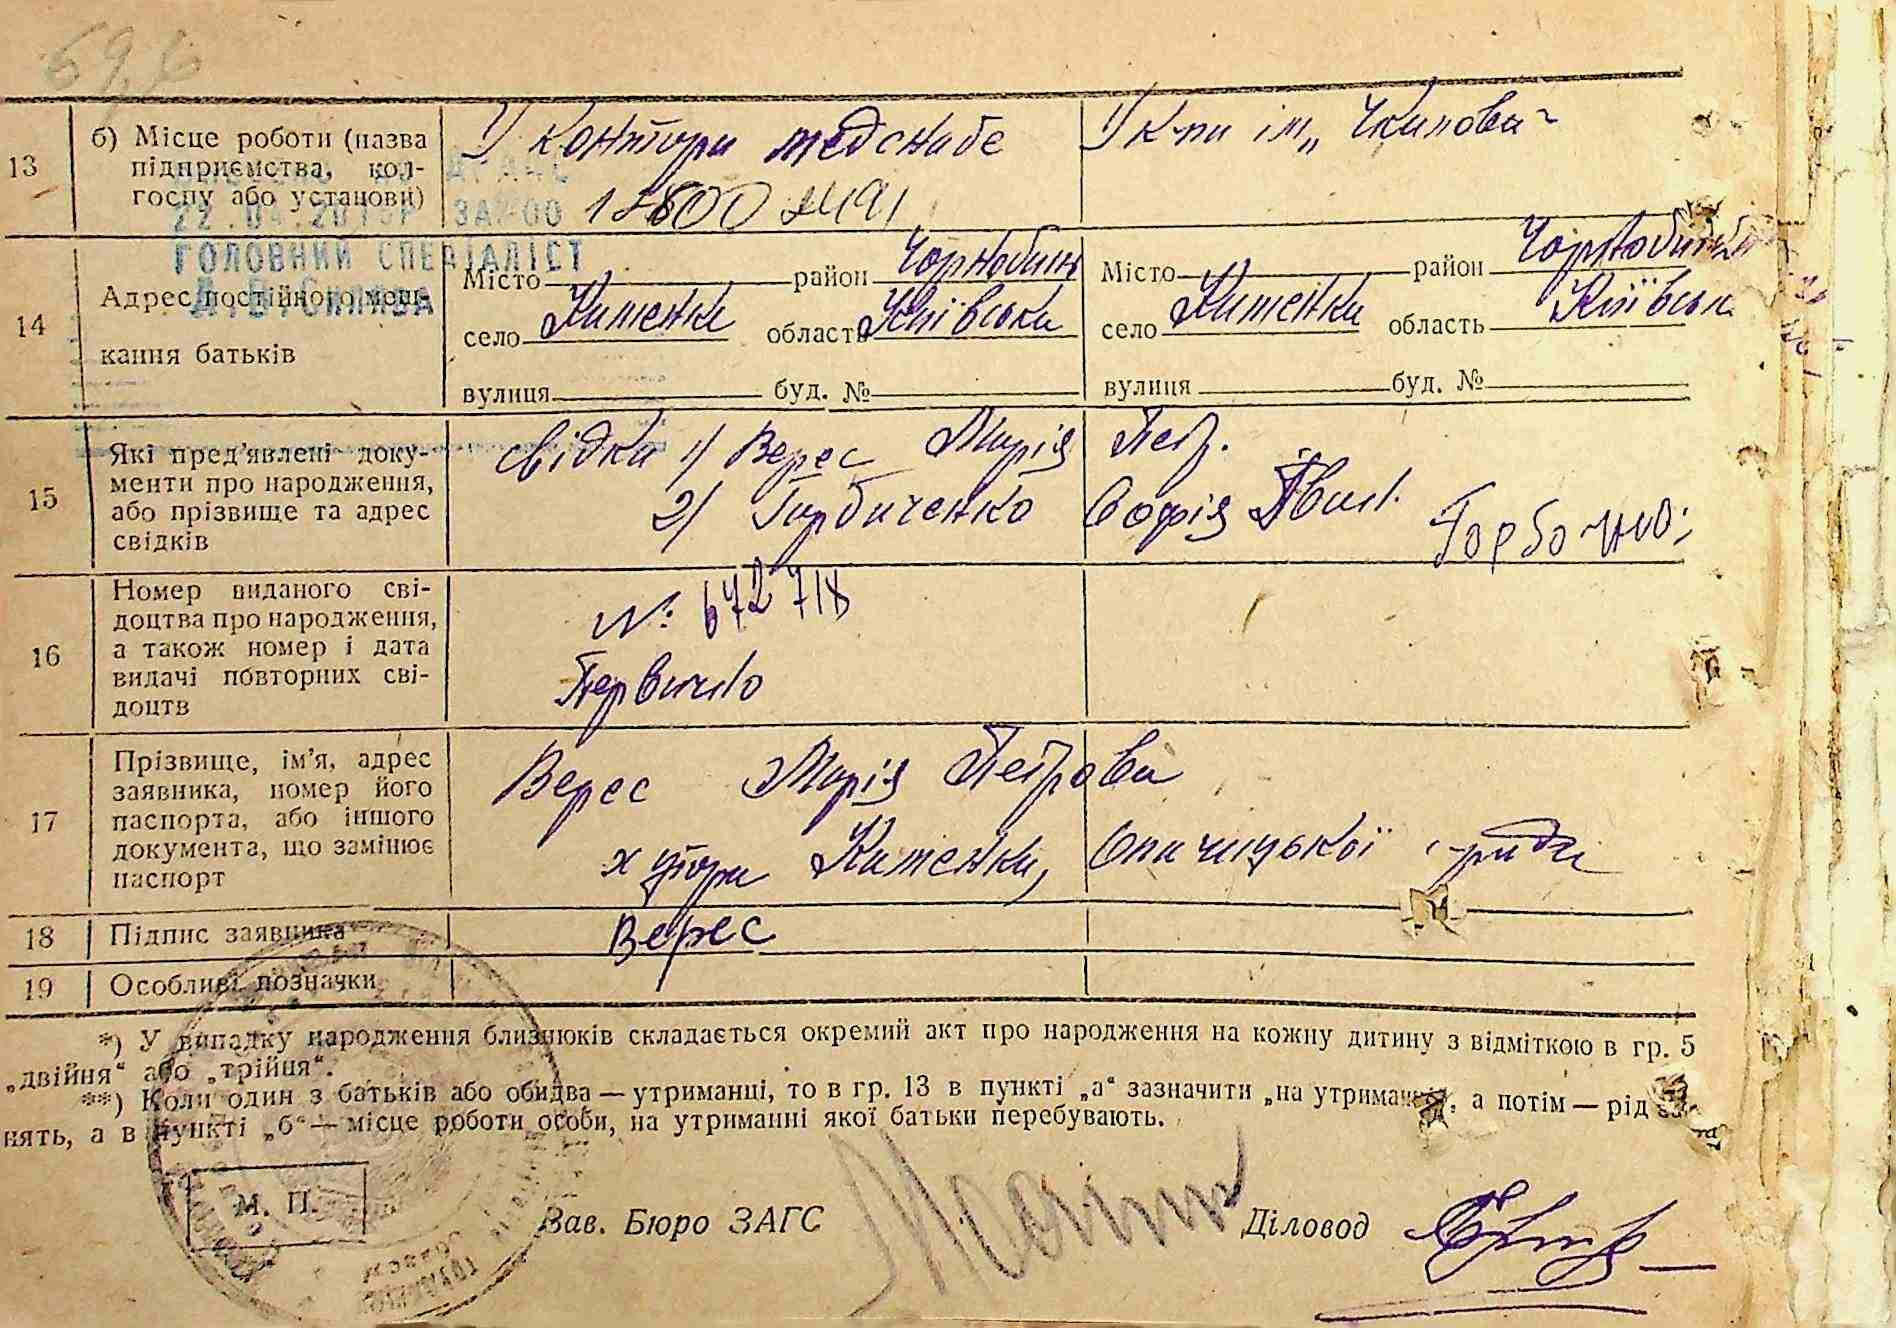 13
б) Місце роботи (назва
підприємства, кол-
госпу або установи)
У контори медснабе
У к-пи ім„ Чкалова"
22.04.2015Р ЗАГ-00
ГОЛОВНИЙ СПЕЦІАЛІСТ
14
Адрес постійного меш-
кання батьків
Місто район Чорнобиль
село Кименки область Київська
вулиця буд. №
Місто район Чорнобильськ
село Кименки область Київськ
вулиця буд. №
15
Які пред'явлені доку-
менти про народження,
або прізвище та адрес
свідків
Свідки 1) Верес Марія Петр.
2) Горбаченко Софія Іван.
16
Номер виданого сві-
доцтва про народження,
а також номер і дата
видачі повторних сві-
доцтв
№ 672718
Первично
17
Прізвище, ім'я, адрес
заявника, номер його
паспорта, або іншого
документа, що замінює
паспорт
Верес Марія Петрова
хутори Кименки, Опачицької с-ради
18
Підпис заявника
Верес
19
Особливі позначки
*) У випадку народження близнюків складається окремий акт про народження на кожну дитину з відміткою в гр. 5
„двійня“ або „трійня“.
**) Коли один з батьків або обидва — утриманці, то в гр. 13 в пункті „а“ зазначити „на утриманні“, а потім — рід за-
нять, а в пункті „б“ — місце роботи особи, на утриманні якої батьки перебувають.
М. П.
Зав. Бюро ЗАГС
Діловод